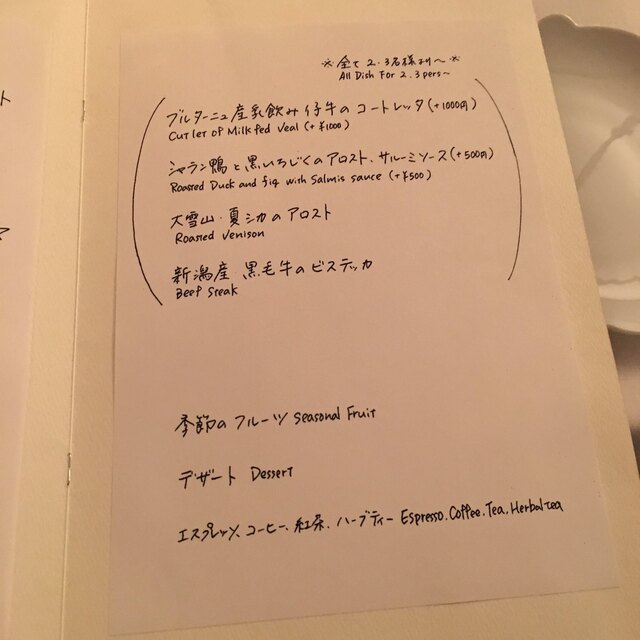 ※全て2.3名様より〜※
All Dish For 2.3pers~
ブルターニュ産乳飲み仔牛のコートレッタ(+1000円)
Cutlet of Milk fed veal (+¥1000)
シャラン鴨と黒いちじくのアロスト、サルーミソース(+500円)
Roasted Duck and fig with Salmis sauce (+¥500)
大雪山・夏シカのアロスト
Roasted Venison
新潟産 黒毛牛のビステッカ
Beef Steak
季節のフルーツ Seasonal Fruit
デザート Dessert
エスプレッソ、コーヒー、紅茶、ハーブティー Espresso.Coffee.Tea.Herbal tea